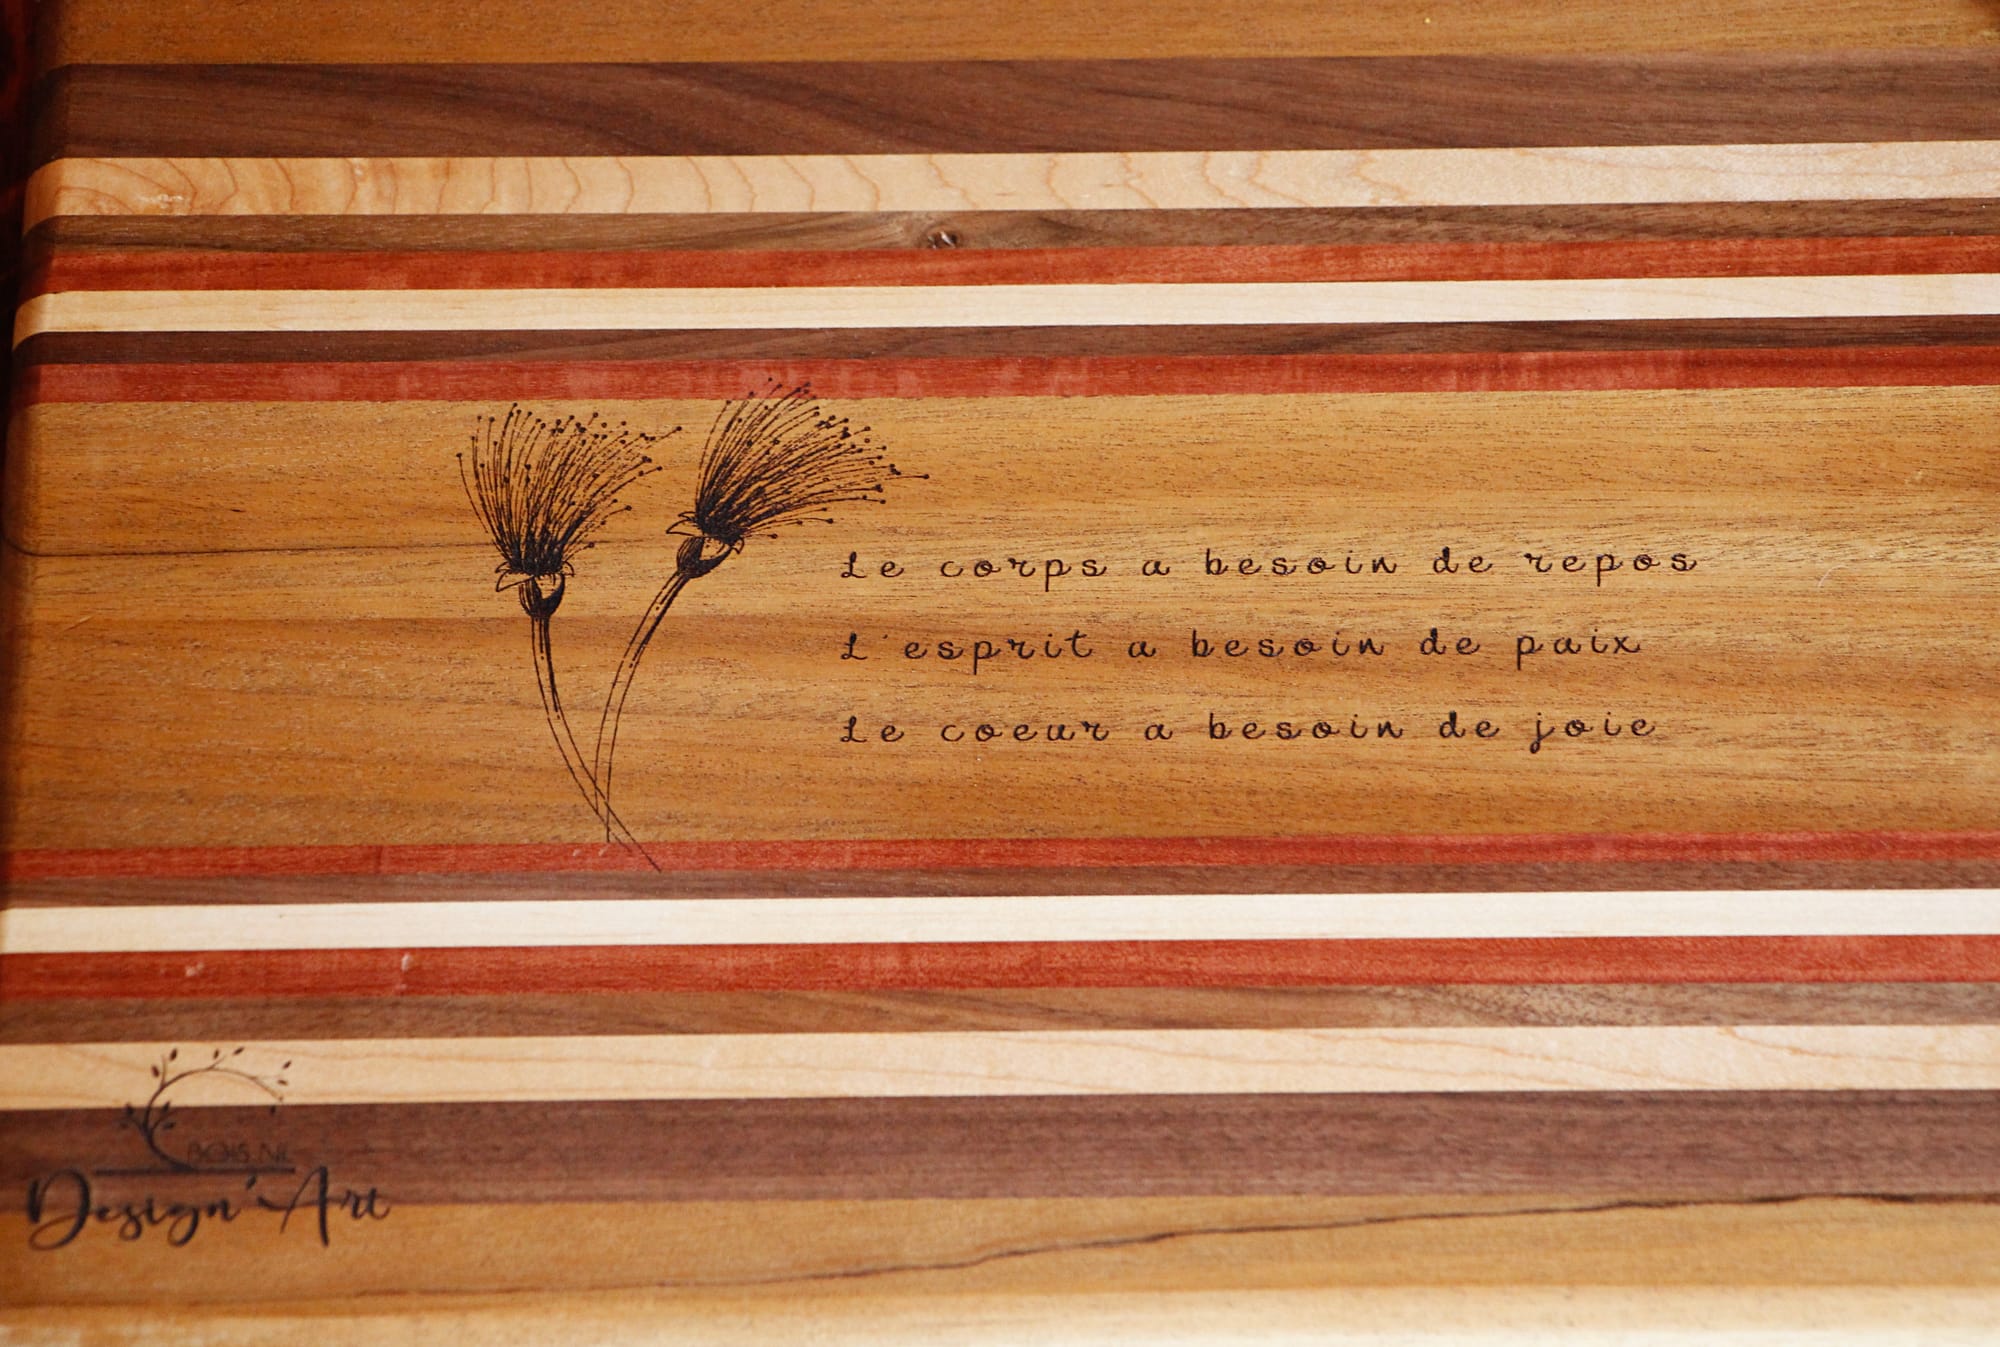 Le corps a besoin de repos
L'esprit a besoin de paix
Le coeur a besoin de joie
BOIS NL
Design'Art